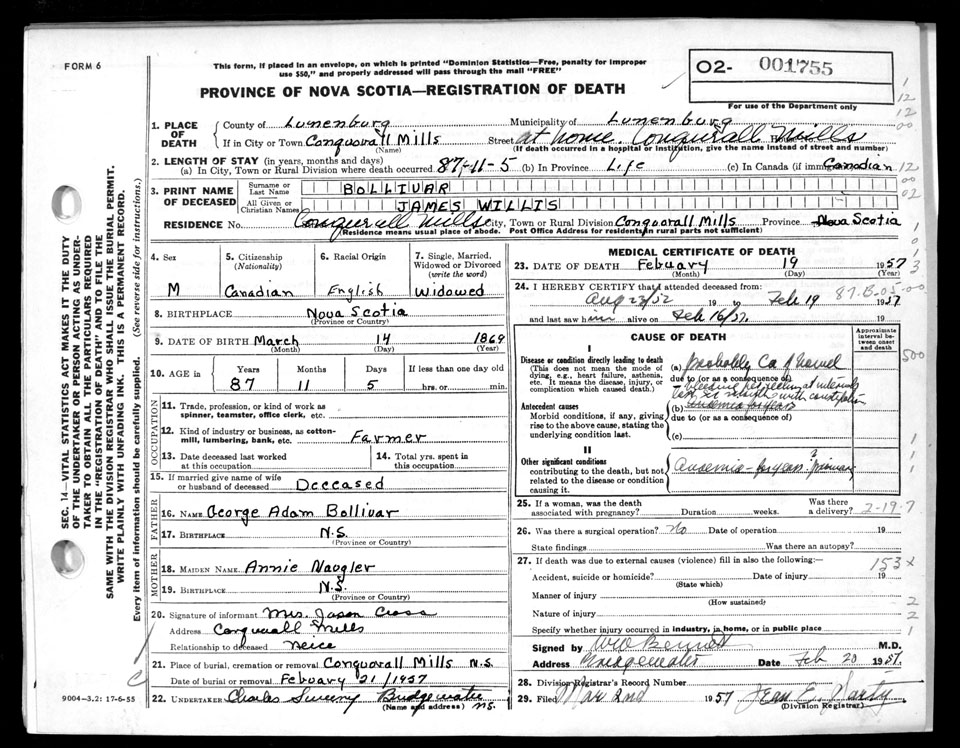 FORM 6
This form, if placed in an envelope, on which is printed "Dominion Statistics—Free, penalty for improper
use $50," and properly addressed will pass through the mail "FREE"
O2- 001755
For use of the Department only
PROVINCE OF NOVA SCOTIA—REGISTRATION OF DEATH
1. PLACE OF DEATH
County of Lunenburg Municipality of Lunenburg
If in City or Town Conquorall Mills (Name) Street at home. Conquerall Mills
(If death occurred in a hospital or institution, give the name instead of street and number)
2. LENGTH OF STAY (in years, months and days)
(a) In City, Town or Rural Division where death occurred 87-11-5 (b) in Province Life (c) In Canada (if immigrant) Canadian
3. PRINT NAME OF DECEASED
Surname or Last Name BOLLIVAR
All Given or Christian Names JAMES WILLIS
RESIDENCE No. Conquerall Mills City, Town or Rural Division Conquorall Mills Province Nova Scotia
(Residence means usual place of abode. Post Office Address for residents in rural parts not sufficient)
4. Sex M
5. Citizenship (Nationality) Canadian
6. Racial Origin English
7. Single, Married, Widowed or Divorced (write the word) Widowed
8. BIRTHPLACE Nova Scotia
(Province or Country)
9. DATE OF BIRTH March 14 1869
(Month) (Day) (Year)
10. AGE in Years Months Days If less than one day old
87 11 5 hrs. or min.
OCCUPATION
11. Trade, profession, or kind of work as
spinner, teamster, office clerk, etc.
12. Kind of industry or business, as cotton-
mill, lumbering, bank, etc. Farmer
13. Date deceased last worked
at this occupation
14. Total yrs. spent in
this occupation
15. If married give name of wife
or husband of deceased Deceased
FATHER
16. NAME George Adam Bollivar
17. BIRTHPLACE N.S.
(Province or Country)
MOTHER
18. MAIDEN NAME Annie Naugler
19. BIRTHPLACE N.S.
(Province or Country)
20. Signature of informant Mrs. Jason Cross
Address Conquerall Mills
Relationship to deceased neice
21. Place of burial, cremation or removal Conquorall Mills N.S.
Date of burial or removal Febuary 21/1957
22. UNDERTAKER Charles Bridgewater N.S.
(Name and address)
MEDICAL CERTIFICATE OF DEATH
23. DATE OF DEATH Febuary 19 1957
(Month) (Day) (Year)
24. I HEREBY CERTIFY that I attended deceased from:
Aug 23/52 19 to Feb 19 1957
87.B.05.00
and last saw him alive on Feb 16/57. 19
CAUSE OF DEATH
Approximate interval between onset and death
I
Disease or condition directly leading to death
(This does not mean the mode of
dying, e.g., heart failure, asthenia,
etc. It means the disease, injury, or
complication which caused death.)
(a) Probably Ca of bowel
due to (or as a consequence of)
bleeding per rectum at intervals
with constipation
(b)
due to (or as a consequence of)
(c)
Antecedent causes
Morbid conditions, if any, giving
rise to the above cause, stating the
underlying condition last.
II
Other significant conditions
contributing to the death, but not
related to the disease or condition
causing it.
Anaemia - for years ? primary
25. If a woman, was the death
associated with pregnancy? Duration weeks. Was there a delivery? 2-19-7
26. Was there a surgical operation? No Date of operation 19
State findings Was there an autopsy?
27. If death was due to external causes (violence) fill in also the following:— 153x
Accident, suicide or homicide? Date of injury 19
(State which)
Manner of injury
(How sustained)
Nature of injury
Specify whether injury occurred in industry, in home, or in public place
Signed by Bennett M.D.
Address Bridgewater Date Feb 20 1957.
28. Division Registrar's Record Number
29. Filed Mar 2nd 1957 Jean E.
(Division Registrar)
SEC. 14—VITAL STATISTICS ACT MAKES IT THE DUTY
OF THE UNDERTAKER OR PERSON ACTING AS UNDER-
TAKER TO OBTAIN ALL THE PARTICULARS REQUIRED
IN THE "REGISTRATION OF DEATH" AND TO FILE THE
SAME WITH THE DIVISION REGISTRAR WHO SHALL ISSUE THE BURIAL PERMIT.
WRITE PLAINLY WITH UNFADING INK. THIS IS A PERMANENT RECORD.
Every item of information should be carefully supplied. (See reverse side for instructions.)
9004—3.2: 17-6-55